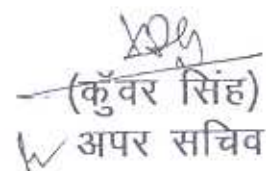 (कुॅवर सिंह)
अपर सचिव